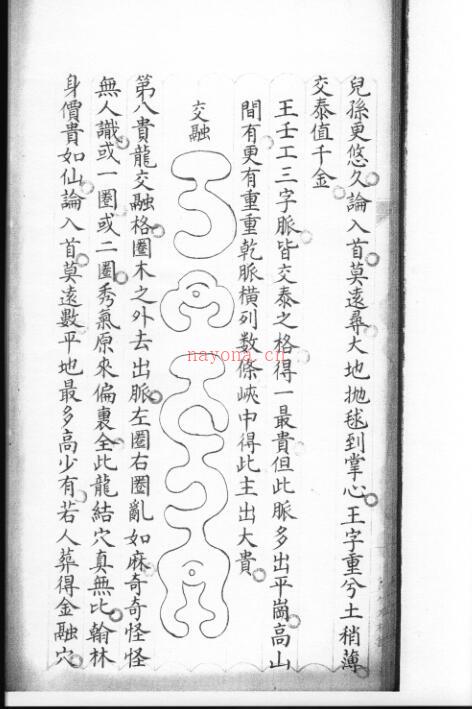 兒孫更悠久論入首莫遠尋大地抛毬到掌心王字重兮土稍薄
交泰值千金
王壬工三字脈皆交泰之格得一最貴但此脈多出平崗高山
間有更有重重乾脈橫列数條峽中得此主出大貴
交融
第八貴龍交融格圈木之外去出脈左圈右圈亂如麻奇奇怪怪
無人識或一圈或二圈秀氣原來偏裹全此龍結穴真無比翰林
身價貴如仙論入首莫遠數平地最多高少有若人葬得金融穴
nayona.cn